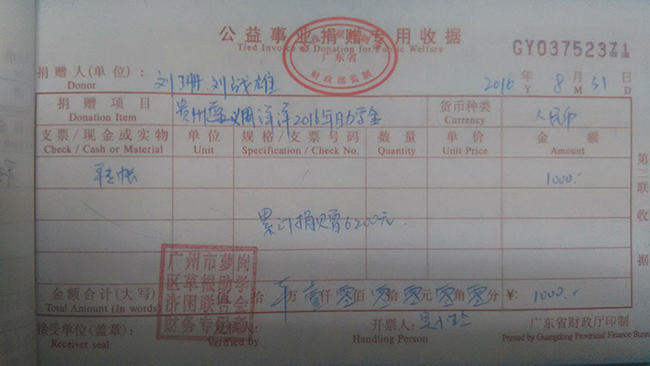 公益事业捐赠专用收据
Tied Invoice of Donation for Public Welfare
广东省
财政部监制
GY03752371
捐赠人(单位): 刘珊.刘战雄 2016年 8月 31日
Donor Y M D
捐赠项目 贵州 周洋洋2016年助学金 货币种类 人民币
Donation Item Currency
支票/现金或实物 单位 规格/支票号码 数量 单价 金额
Check / Cash or Material Unit Specification / Check No. Quantity Unit Price Amount
转帐 1000.-
累计捐赠6200元
第二联 收据
广州市萝岗
区草根助学
许图联合会
财务专
金额合计(大写) 佰 拾 万 壹仟 零佰 零拾 零元 零角 零分 ¥: 1000.-
Total Amount (In words)
接受单位(盖章): 开票人: 广东省财政厅印制
Receiver seal Verified by Handling Person Printed by Guangdong Provincial Finance Bureau